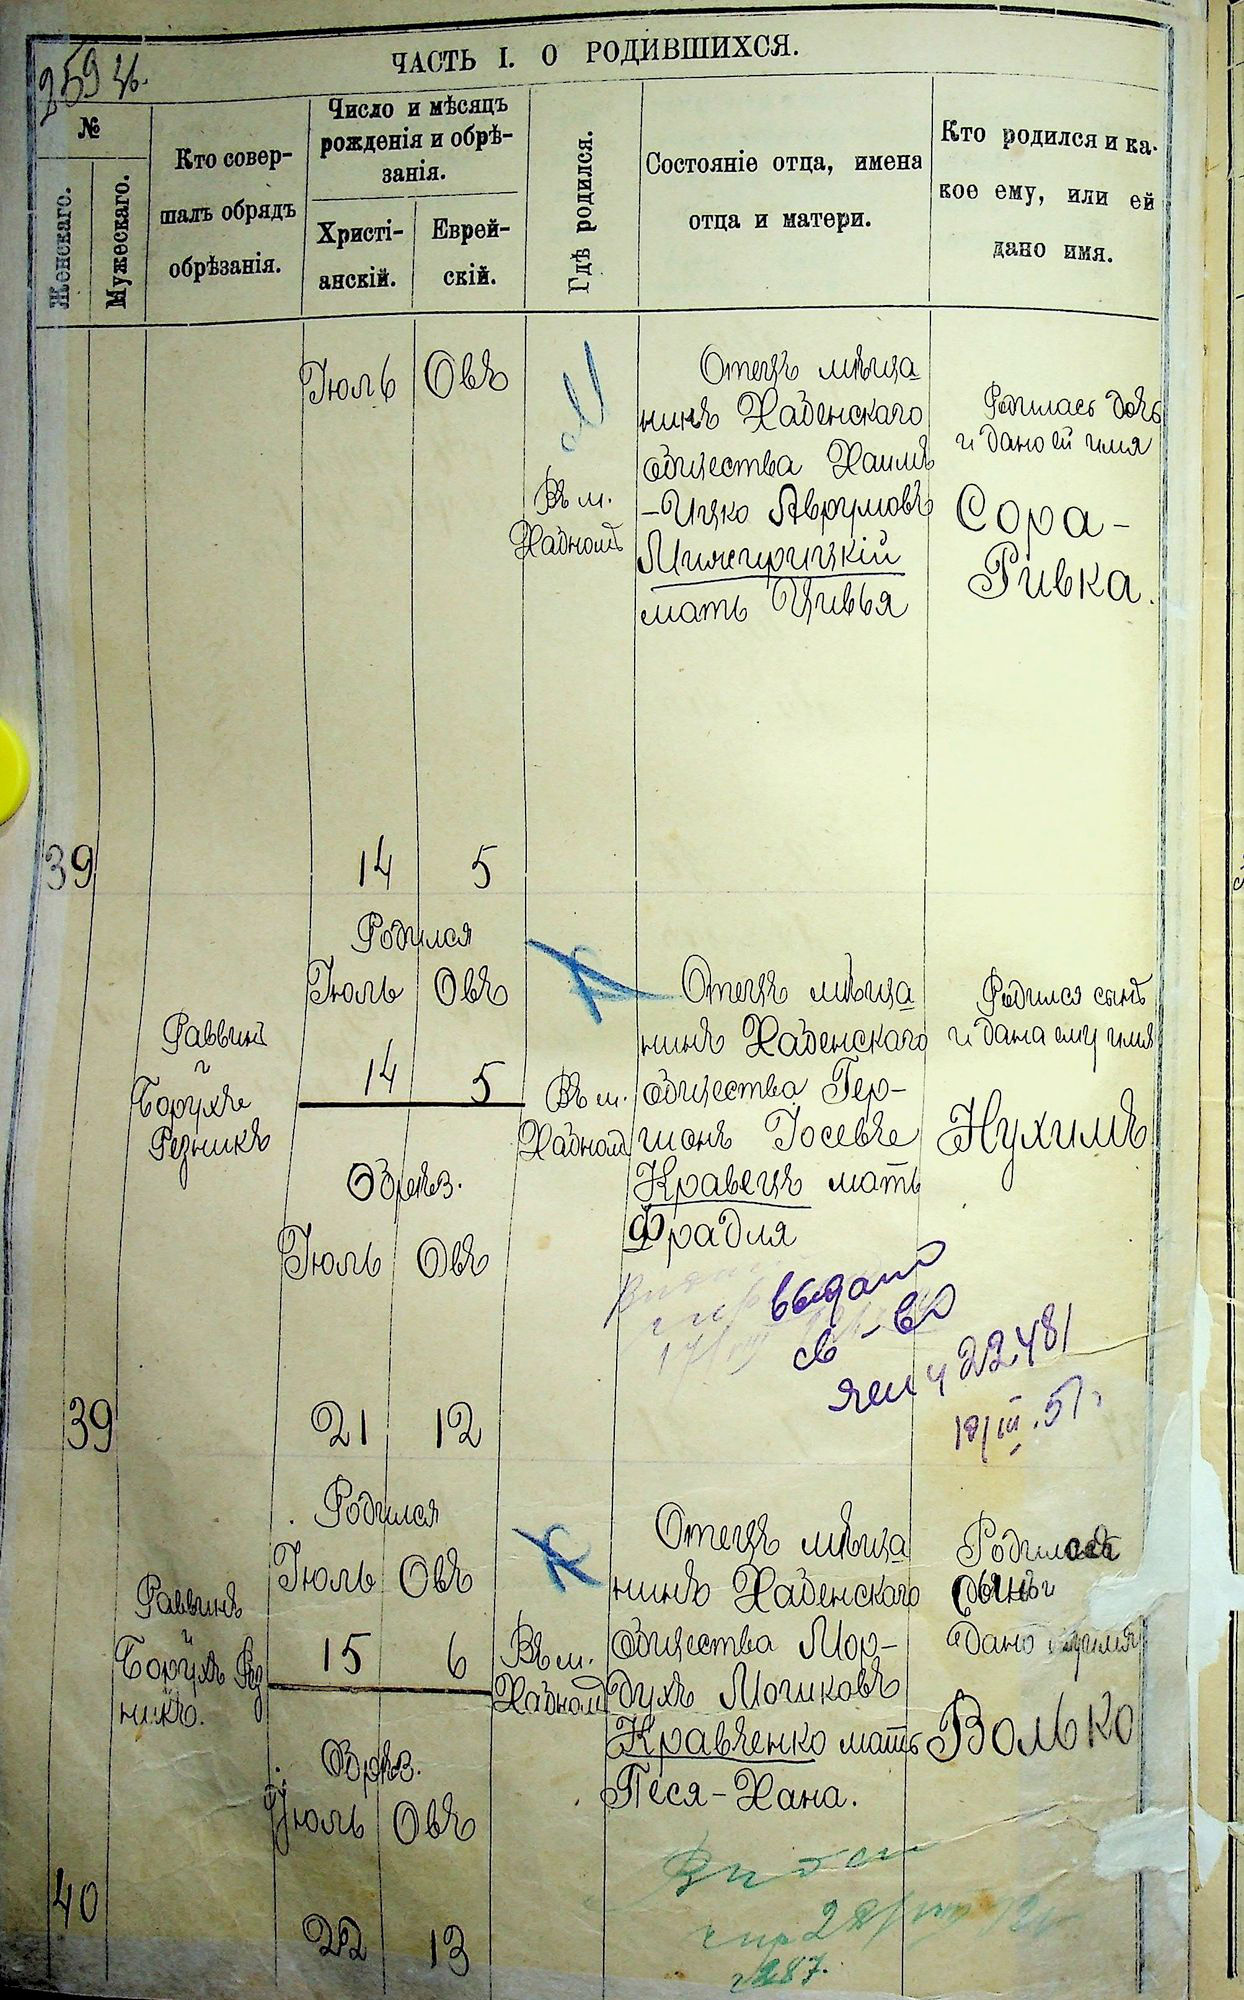 259 
ЧАСТЬ I. О РОДИВШИХСЯ.
№
Женскаго.
Мужескаго.
Кто совер-
шалъ обрядъ
обрѣзанія.
Число и мѣсяцъ
рожденія и обрѣ-
занія.
Христі-
анскій.
Еврей-
скій.
Гдѣ родился.
Состояніе отца, имена
отца и матери.
Кто родился и ка-
кое ему, или ей
дано имя.
39
Іюль Овъ
14 5
Въ м.
Хабномъ
Отецъ мѣща
нинъ Хабенскаго
общества Хаимъ
-Ицко Аврумовъ
Межирицкій
мать Цивья
Родилась дочь
и дано ей имя
Сора-
Ривка.
39
Раввинъ
и
Борухъ
Резникъ
Родился
Іюль Овъ
14 5
Обрѣз.
Іюль Овъ
21 12
Въ м.
Хабномъ
Отецъ мѣща
нинъ Хабенскаго
общества Гер-
шонъ Іосевъ
Кравецъ мать
Фрадля
Родился сынъ
и дана ему имя
Нухимъ
выдано
св-во
22481
19/III.51г.
40
Раввинъ
и
Борухъ Рез
никъ.
Родился
Іюль Овъ
15 6
Обрѣз.
Іюль Овъ
22 13
Въ м.
Хабномъ
Отецъ мѣща
нинъ Хабенскаго
общества Мор-
духъ Мошковъ
Кравченко мать
Песя-Хана.
сынъ
дано имя
Волько